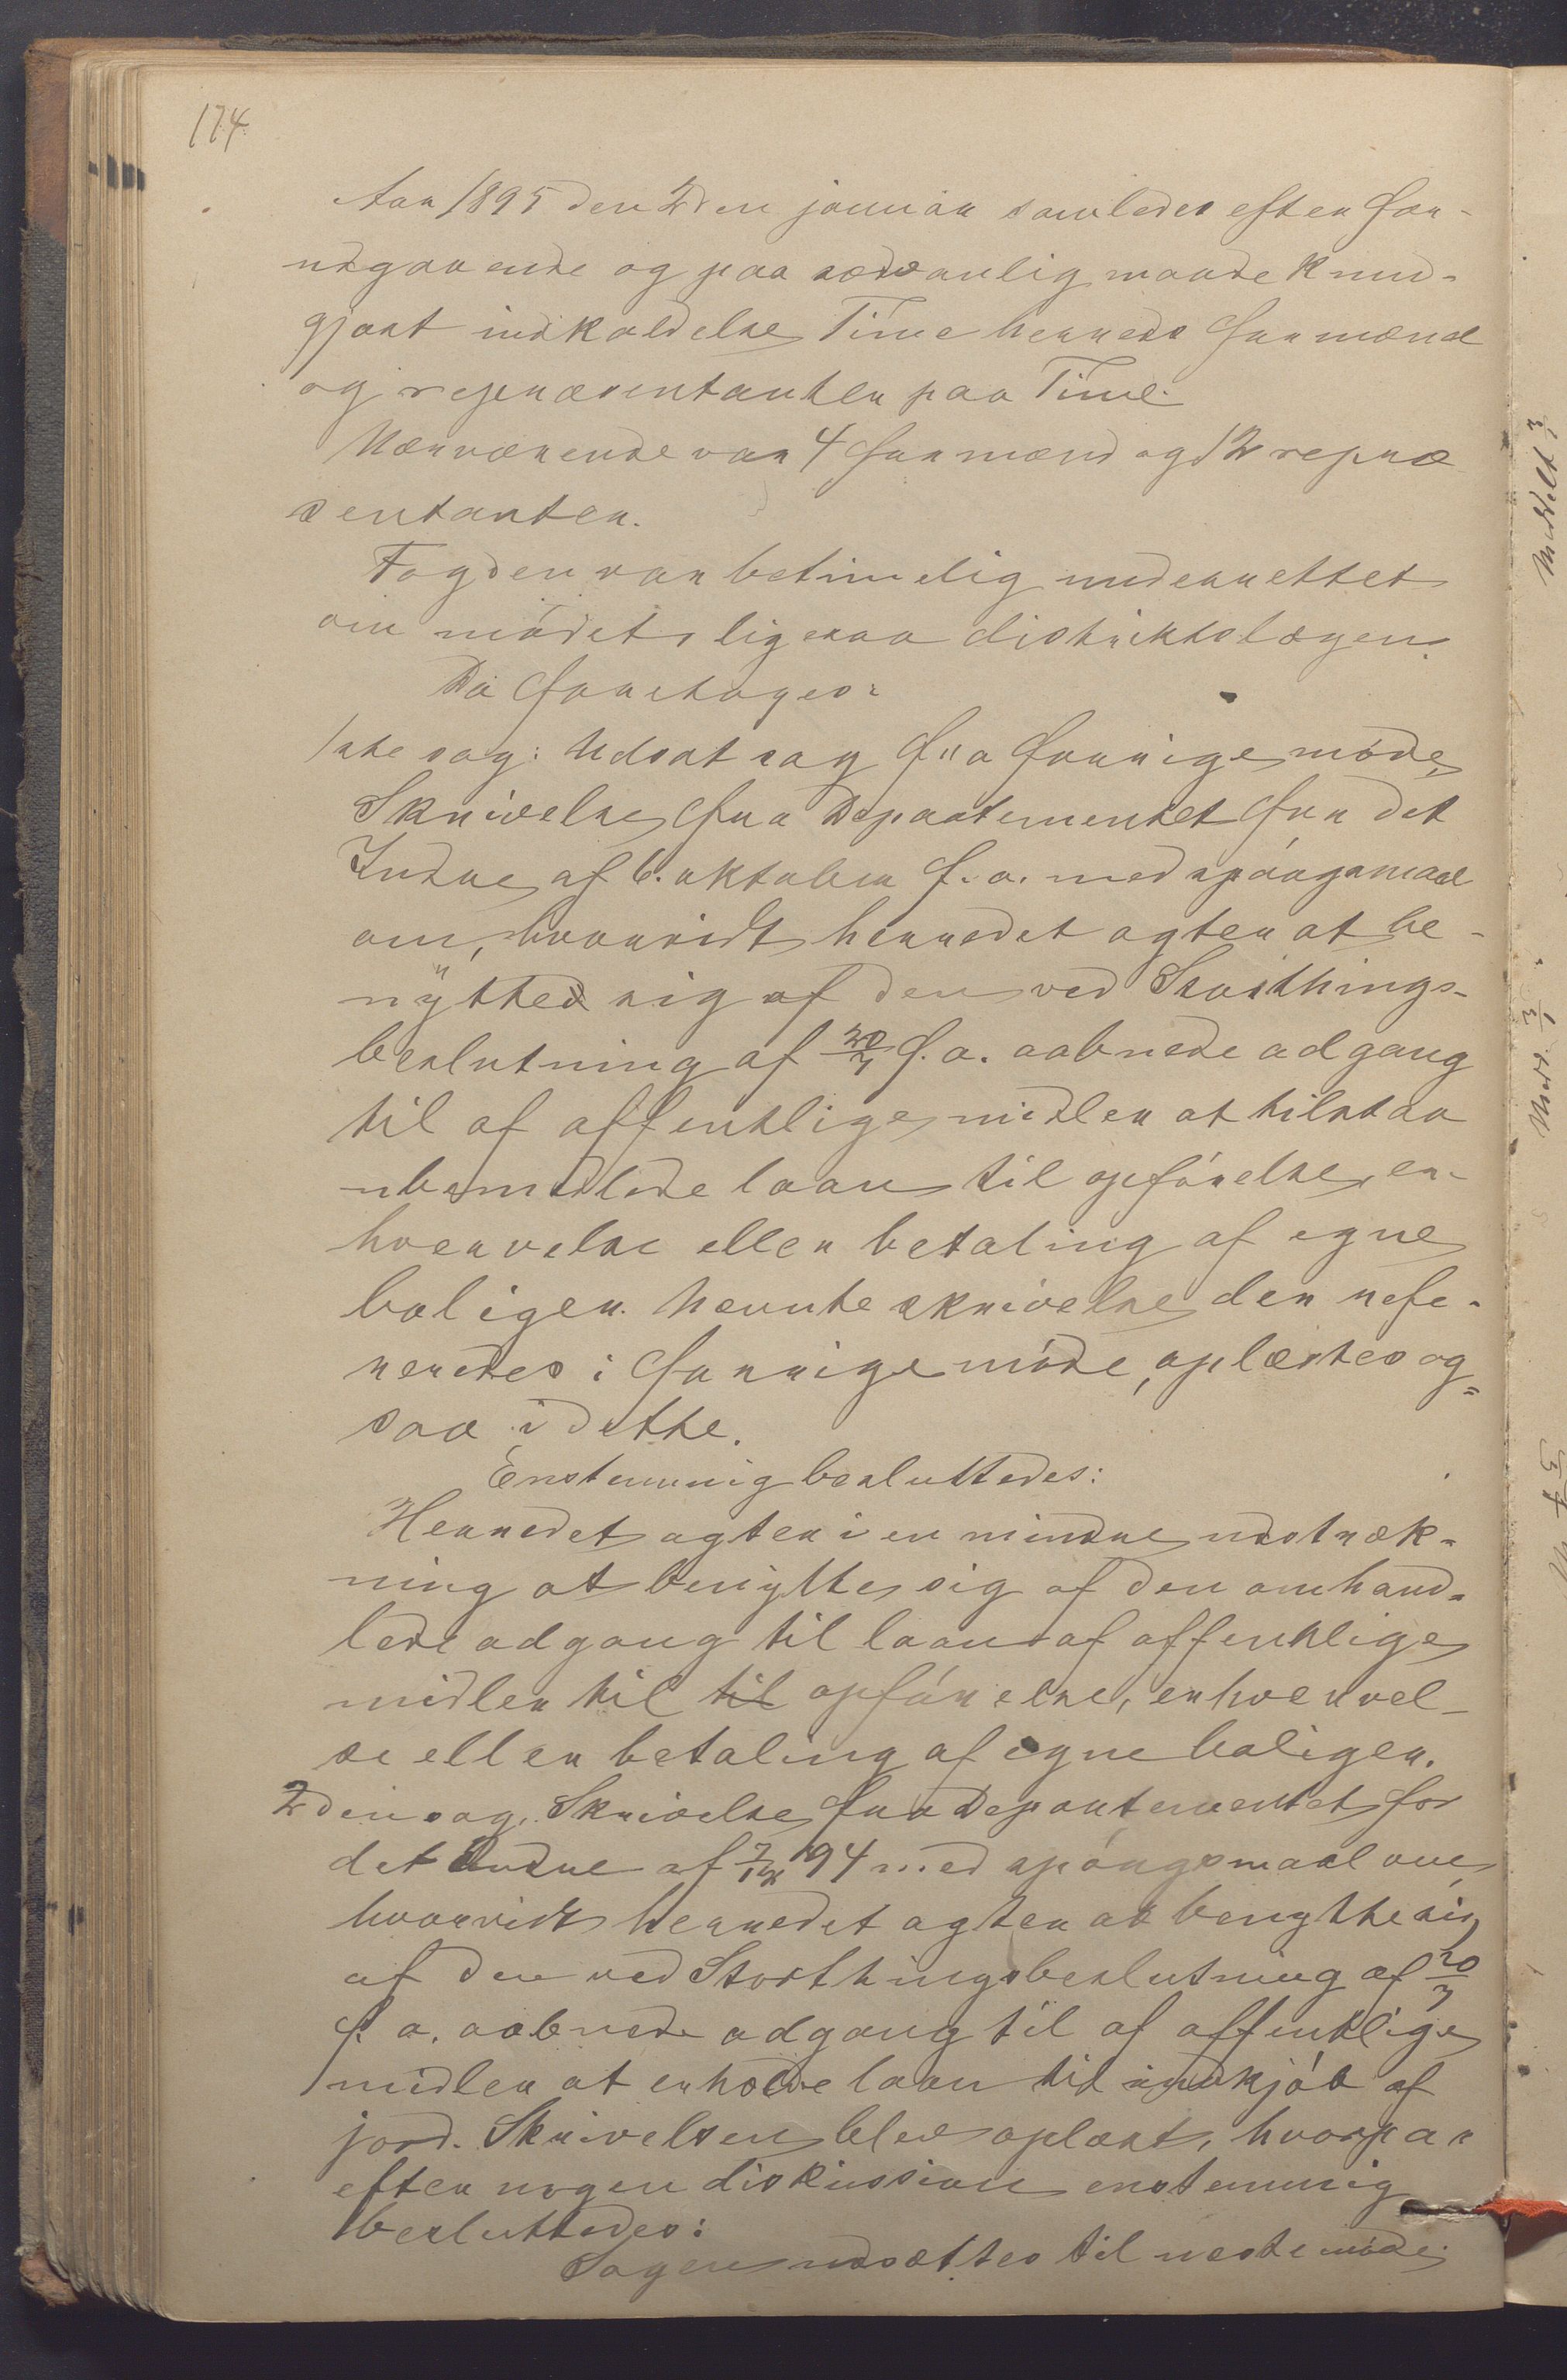 174
Aar 1895 den 2den januar samledes efter for-
udgaaende og paa sædvanlig maade kund-
gjort indkaldelse Time herreds formænd
og repræsentanter paa Time.
Nærværende var 4 formænd og 12 repræ
sentanter.
Fogden var betimelig underrettet
om mødet, ligesaa distriktslægen.
Da foretoges:
1ste sag: Udsat sag fra forrige møde,
Skrivelse fra Departementet for det
Indre af 6. oktober f. a. med spørgsmaal
om, hvorvidt herredet agter at be-
nytte sig af den ved Storthings-
beslutning af 20/7 f. a. aabnede adgang
til af offentlige midler at tilstaa
ubemidlede laan til opførelse, er-
hvervelse eller betaling af egne
boliger. Nævnte skrivelse, der refe-
reredes i forrige møde, oplæstes og-
saa i dette.
Enstemmig besluttedes:
Herredet agter i en mindre udstræk-
ning at benytte sig af den omhand-
lede adgang til laan af offentlige
midler til til opførelse, erhvervel-
se eller betaling af egne boliger.
2den sag. Skrivelse fra Departementet for
det Indre af 7/12 94 med spørgsmaal om,
hvorvidt herredet agter at benytte sig
af den ved Storthingsbeslutning af 20/7
f. a. aabnede adgang til af offentlige
midler at erholde laan til indkjøb af
jord. Skrivelsen blev oplæst, hvorpaa
efter nogen diskussion enstemmig
besluttedes:
Sagen udsættes til næste møde.
Meddelt 3/1
Medd. 3/1